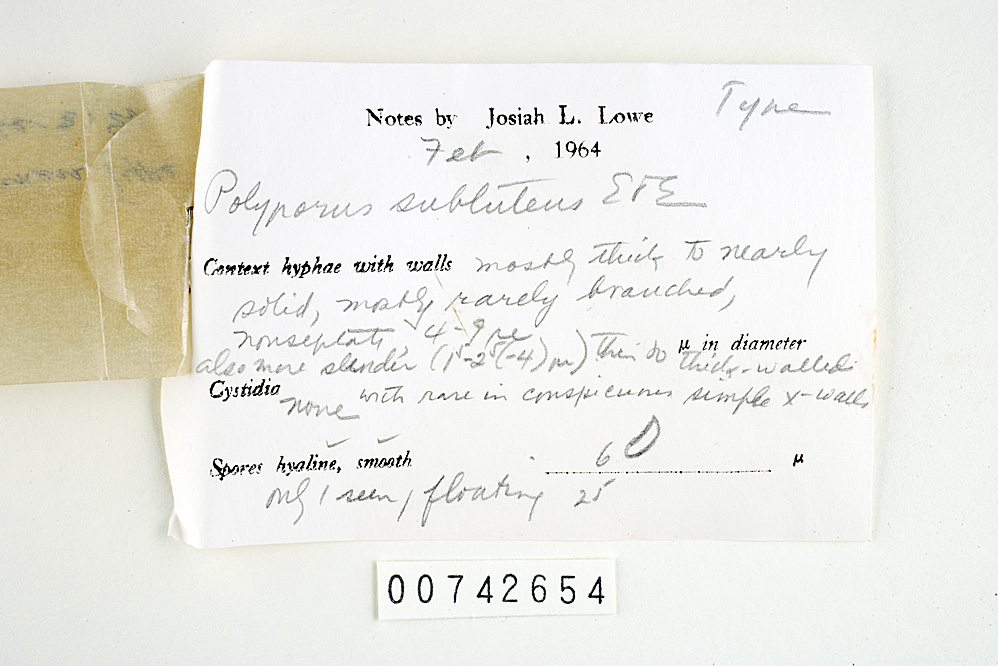 Type
Notes by Josiah L. Lowe
Feb , 1964
Polyporus subluteus E+E
Context hyphae with walls mostly thick to nearly
solid, mostly rarely branched,
nonseptate, 4-9 μ μ in diameter
also more slender (1.5-2.5(-4) μ) thin to thick-walled
Cystidia none with rare inconspicuous simple x-walls
Spores hyaline, smooth 6 μ
only 1 seen, floating 2.5
00742654